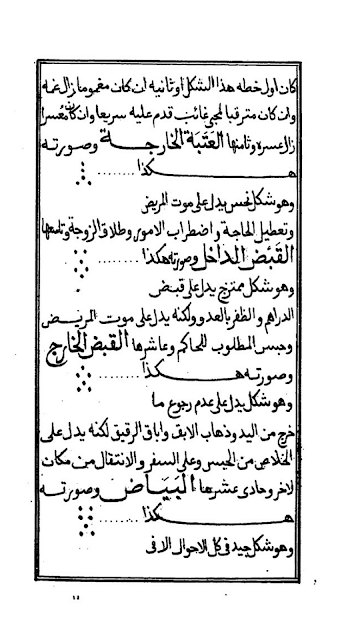 كان اول خطه هذا الشكل او ثانيه ان كان مغموما زال غمه
وان كان مترقبا لمجئ غائب قدم عليه سريعا وان كان معسرا
زال عسره وثامنها العَتَبَة الخارجــة وصورتـه
هكذا ........
وهو شكل نحس يدل على موت المريض
وتعطيل الحاجة واضطراب الامور وطلاق الزوجة وتاسعها
القَبْض الداخل وصورته هكذا ........
وهو شكل ممتزج يدل على قبض
الدراهم والظفر بالعدو ولكنه يدل على موت المريض
وحبس المطلوب للحاكم وعاشرها القبض الخارج
وصورته هكذا ........
وهو شكل يدل على عدم رجوع ما
خرج من اليد وذهاب الابق واباق الرقيق لكنه يدل على
الخلاص من الحبس وعلى السفر والانتقال من مكان
لاخر وحادى عشرها البَيَاض وصورتـه
هكذا ........
وهو شكل جيد فى كل الاحوال الا فى